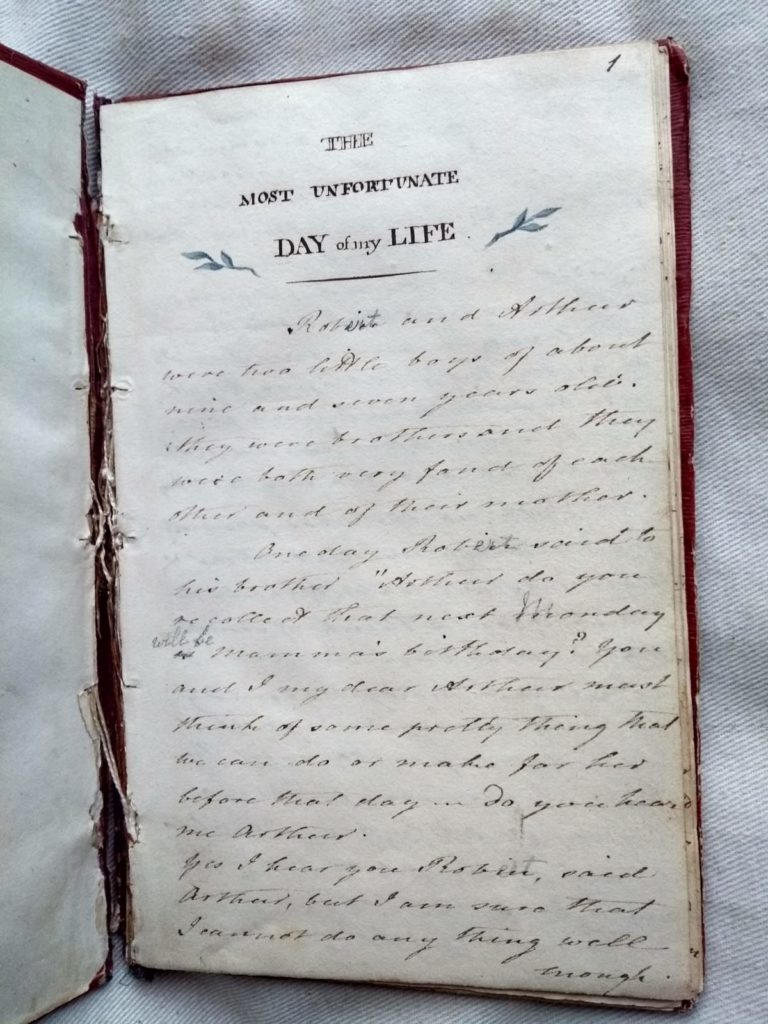 1
THE
MOST UNFORTUNATE
DAY of my LIFE.
Robert and Arthur
were two little boys of about
nine and seven years old.
They were brothers and they
were both very fond of each
other and of their mother.
One day Robert said to
his brother "Arthur do you
recollect that next Monday
will be
is mamma's birthday? You
and I my dear Arthur must
think of some pretty thing that
we can do or make for her
before that day — Do you hear
me Arthur.
Yes I hear you Robert, said
Arthur, but I am sure that
I cannot do any thing well
enough.